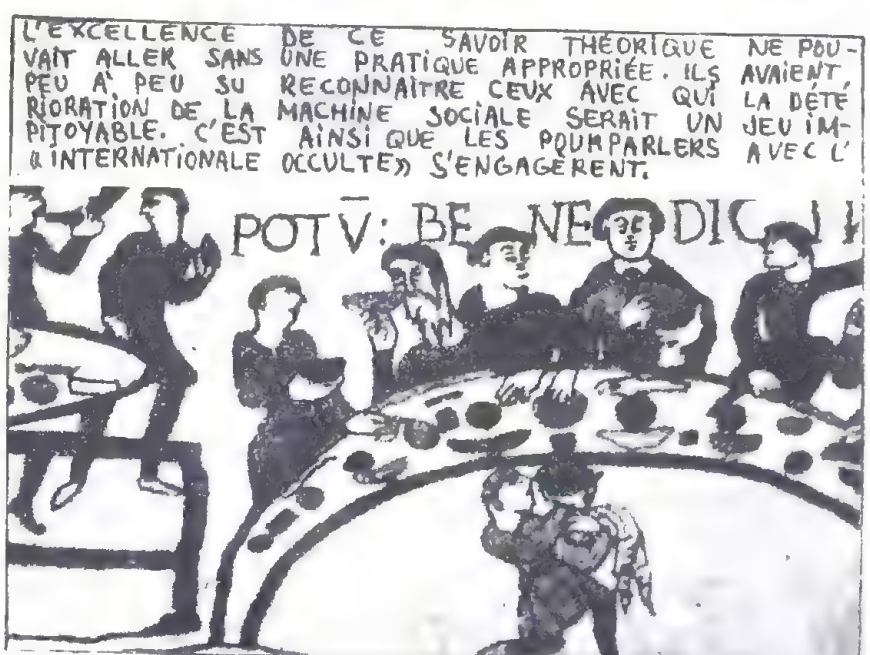 L'EXCELLENCE DE CE SAVOIR THÉORIQUE NE POU-
VAIT ALLER SANS UNE PRATIQUE APPROPRIÉE. ILS AVAIENT,
PEU À PEU SU RECONNAÎTRE CEUX AVEC QUI LA DÉTÉ
RIORATION DE LA MACHINE SOCIALE SERAIT UN JEU IM-
PITOYABLE. C'EST AINSI QUE LES POURPARLERS AVEC L'
«INTERNATIONALE OCCULTE» S'ENGAGÈRENT.
POTV̄: BE NE DIC